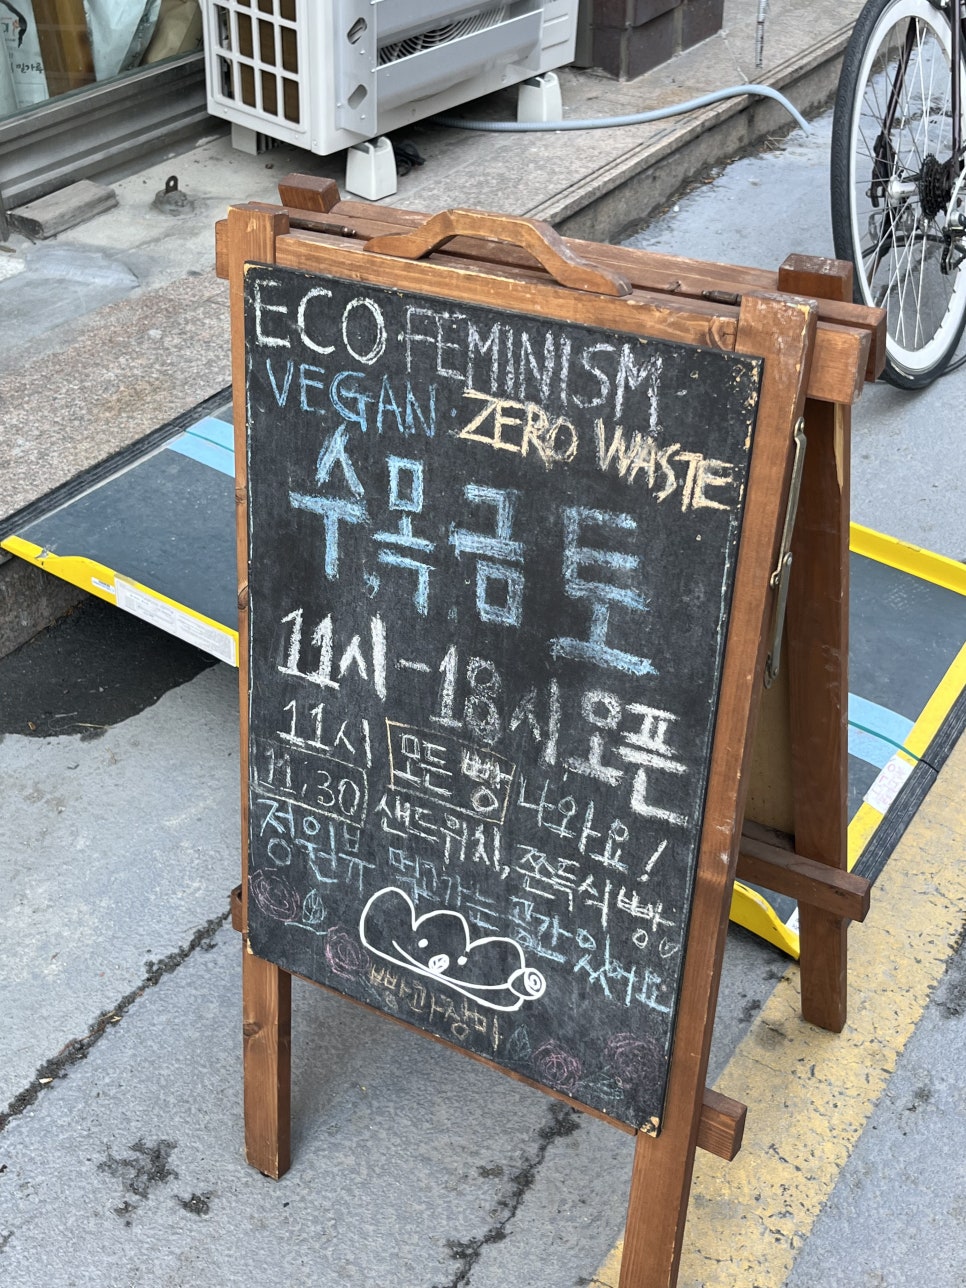 밀가루
ECO FEMINISM
VEGAN · ZERO WASTE
수,목금토
11시-18시오픈
11시 모든빵 나와요!
11.30 샌드위치, 쫀득식빵
정원뷰 먹고가는 공간있어요
빵과장미